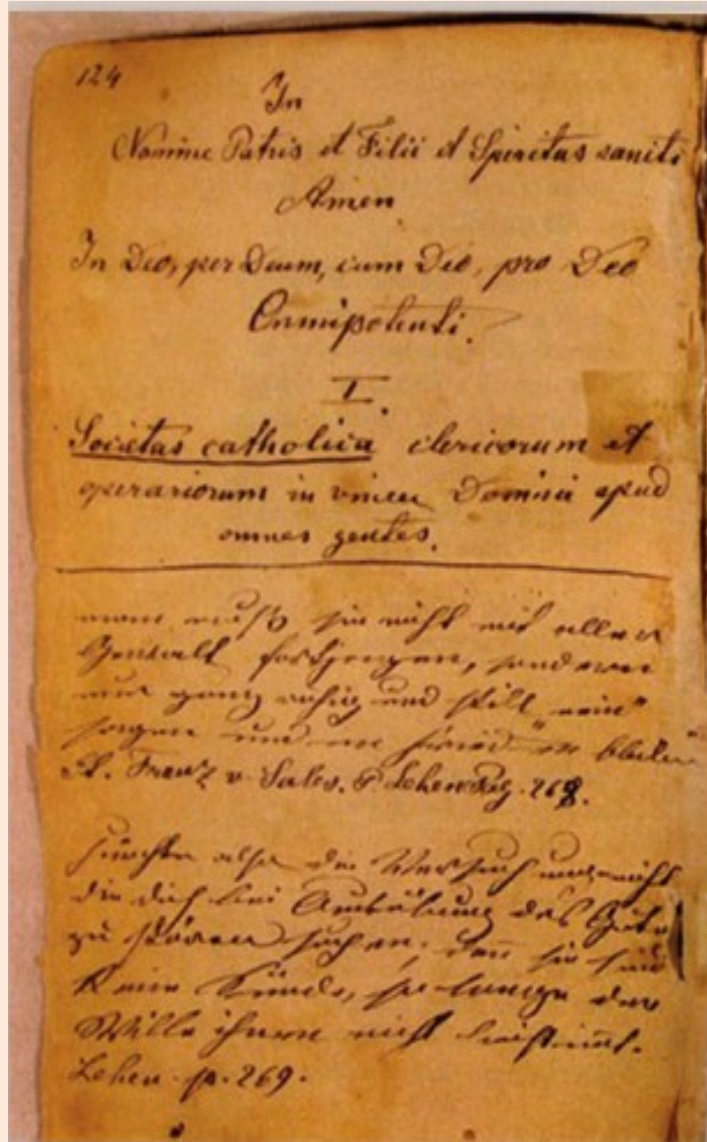 124
In
Nomine Patris et Filii et Spiritus sancti
Amen
In Deo, per Deum, cum Deo, pro Deo
Omnipotenti.
I.
Societas catholica clericorum et
operariorum in vinea Domini apud
omnes gentes.
man muß sie nicht mit aller
Gewalt fortjagen, sondern
nur ganz ruhig und still "nein"
sagen und im Frieden bleiben
St. Franz v. Sales. P Lehen Pag. 268.
Fürchte also die Versuchungen nicht
die dich bei Ausübung des Guten
zu stören suchen; den sie sind
keine Sünde, so lange der
Wille ihnen nicht beistimmt.
Lehen p. 269.